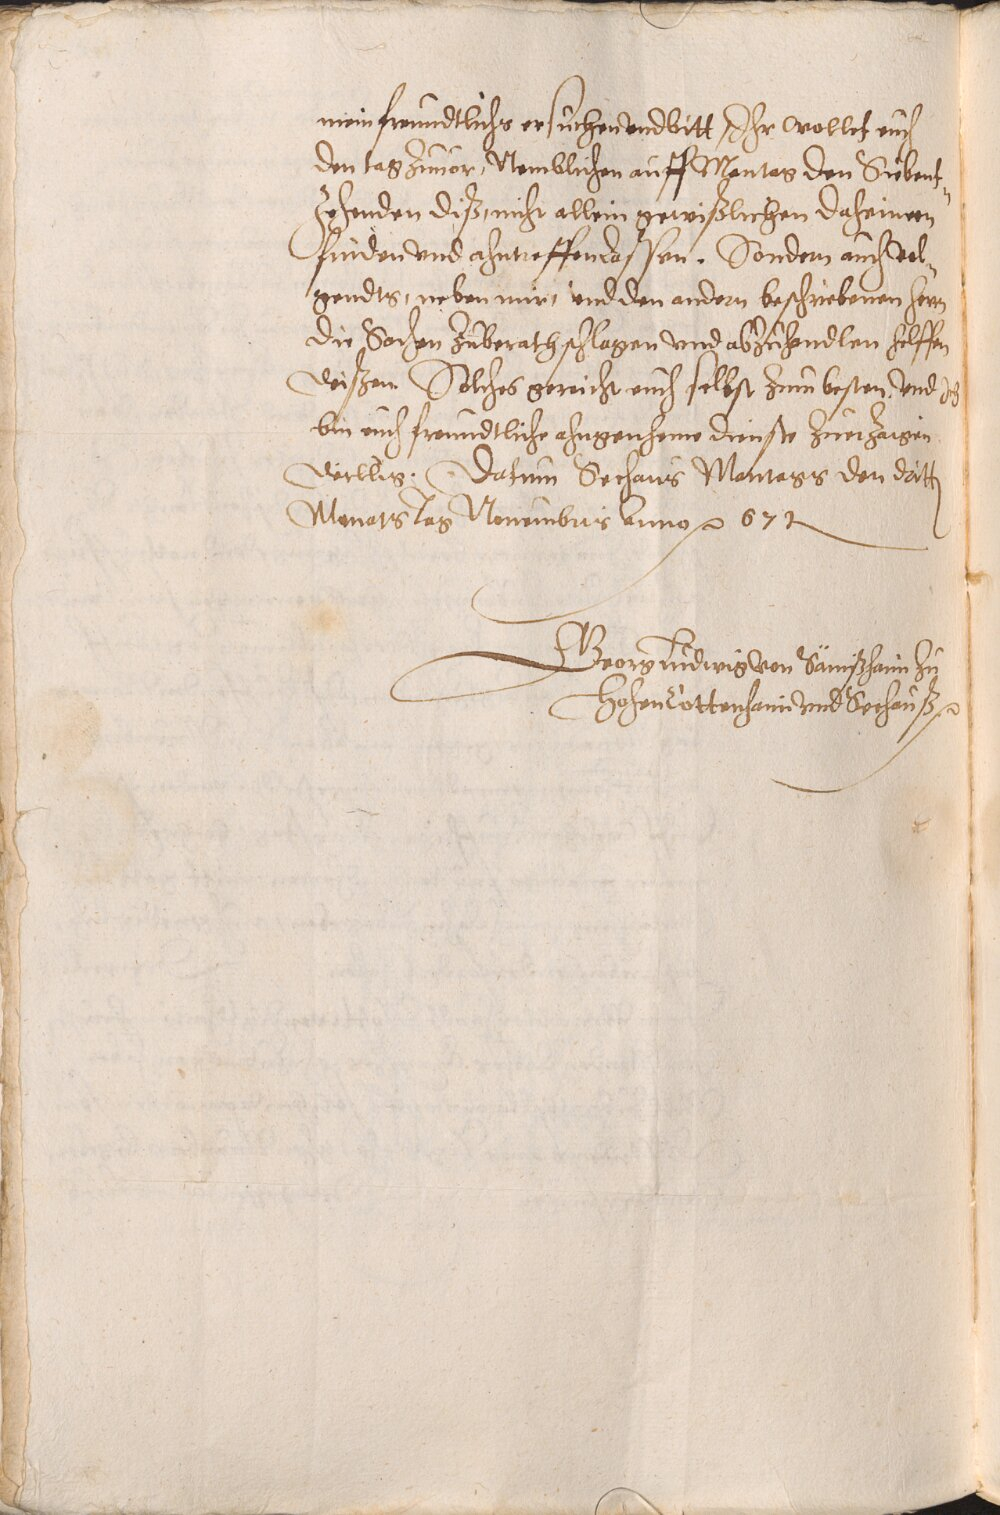 mein freundtlichs ersuchen vnd bitt, Ihr wollet euch
den tag Zuuor, Nemblichen auff Montag den Siebent¬
Zehenden diß, nicht allein gewißlichen daheimen
finden vnd ahntreffen lassen. Sondern auch vol¬
gendts, neben mir, vnd den andern beschriebenen herrn
die Sachen Zuberathschlagen vnd abZuhandlen helffen
Solches gereicht euch selbst Zum besten, vnd Ich
bin euch freundtliche ahngenheme dienste Zuerzaigen
Datum Sehaus Montags den dritt
Monats tag Nouembris Anno 
Georg Ludwig von Säinßhaim Zu
HohenCottenhaim vnd Seehauß